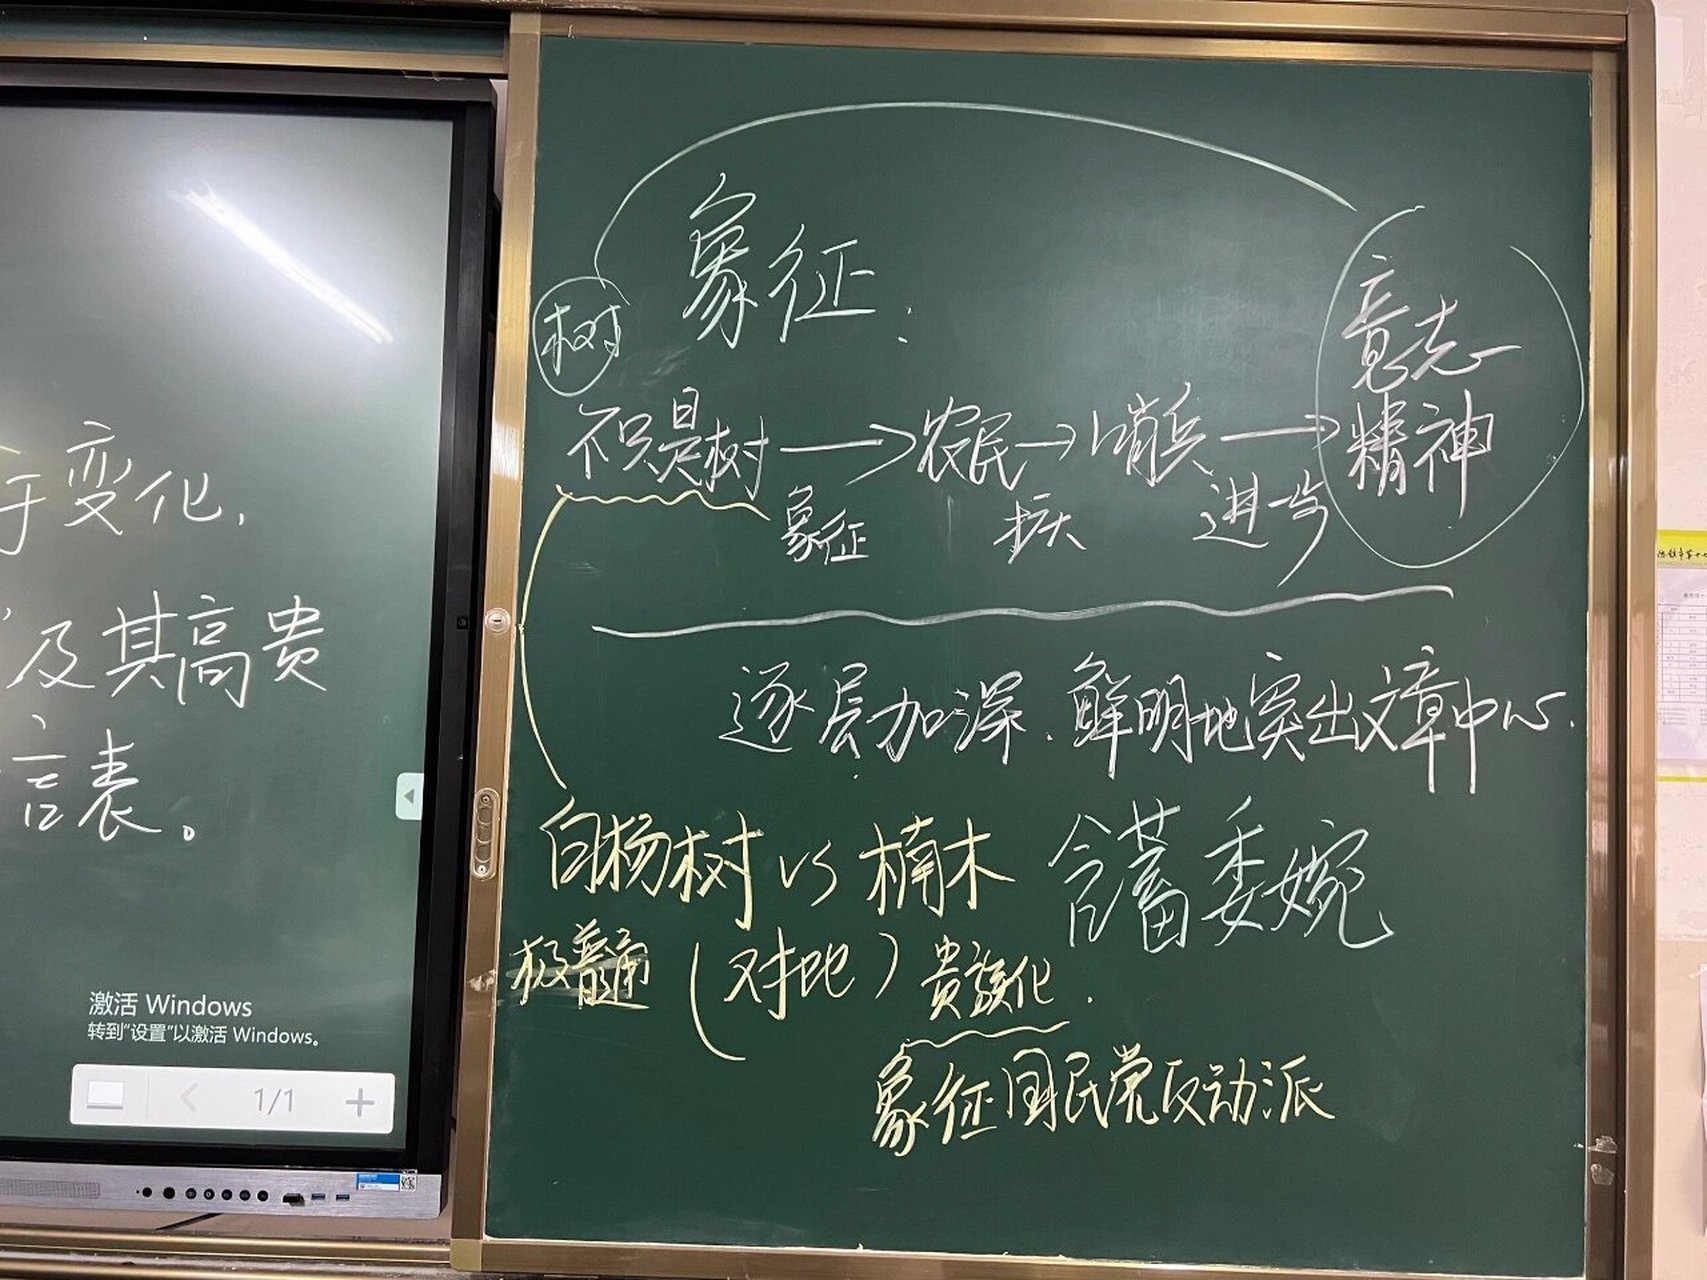 变化,
及其高贵
言表。
激活 Windows
转到“设置”以激活 Windows。
1/1
象征:
树
意志
精神
不只是树→农民→哨兵→
象征 扩大 进步
逐层加深.鲜明地突出文章中心.
白杨树 vs 楠木
含蓄委婉
极普通(对比)贵族化.
象征国民党反动派